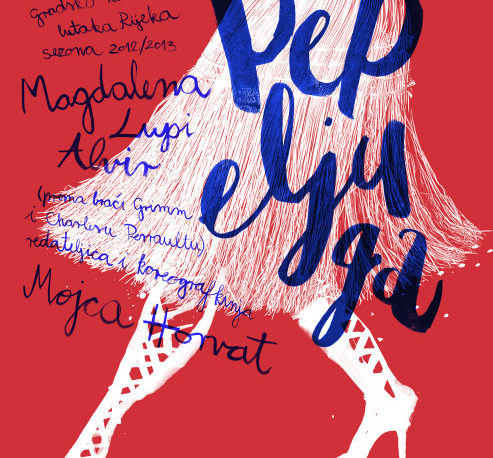 gradsko
lutaka Rijeka
sezona 2012/2013
Magdalena
Lupi
Alvir
(prema braći Grimm
i Charlesu Perraultu)
redateljica i koreografkinja
Mojca Horvat
Pep
elju
ga